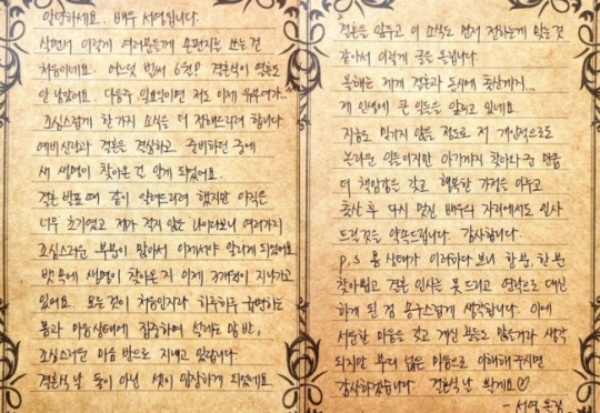 안녕하세요. 배우 서영입니다.
살면서 이렇게 여러분들께 손편지를 쓰는건
처음이네요. 어느덧 벌써 6월? 결혼식이 얼마
안 남았어요. 다음주 일요일이면 저도 이제 유부여가..
조심스럽게 한가지 소식을 더 전해드리려 합니다.
예비신랑과 결혼을 결심하고 준비하던 중에
새 생명이 찾아온 걸 알게 되었어요.
결혼 발표 때 같이 알려드리려 했지만 아직은
너무 초기였고 제가 적지 않은 나이다보니 여러가지
조심스러운 부분이 많아서 이제서야 알리게 되었어요
뱃속에 생명이 찾아온지 이제 3개월이 지나가고
있어요. 모든것이 처음인지라 하루하루 급변하는
몸과 마음상태에 집중하여 설레도 암 반,
조심스러운 마음 반으로 지내고 있답니다.
결혼식 날 둘이 아닌 셋이 입장하게 되었네요.
결혼을 앞두고 이 소식도 먼저 전하는게 맞는것
같아서 이렇게 글을 올립니다.
올해는 제게 결혼과 동시에 출산까지...
제 인생에 큰 일들을 앞두고 있네요.
지금도 믿기지 않을 정도로 저 개인적으로도
놀라운 일들이지만 아가까지 찾아와 준 만큼
더 책임감을 갖고 행복한 가정을 이루고
출산 후 다시 멋진 배우의 자리에서도 인사
드릴 것을 약속드립니다. 감사합니다.
p.s 몸 상태가 이러하다 보니 한분, 한분
찾아뵙고 결혼 인사를 못드리고 연락으로 대신
하게 된 점 송구스럽게 생각합니다. 이에
서운한 마음을 갖고 계신 분들도 많을거라 생각
되지만 부디 넓은 마음으로 이해해 주시면
감사하겠습니다. 결혼식 날 봬게요♡
- 서영 올림